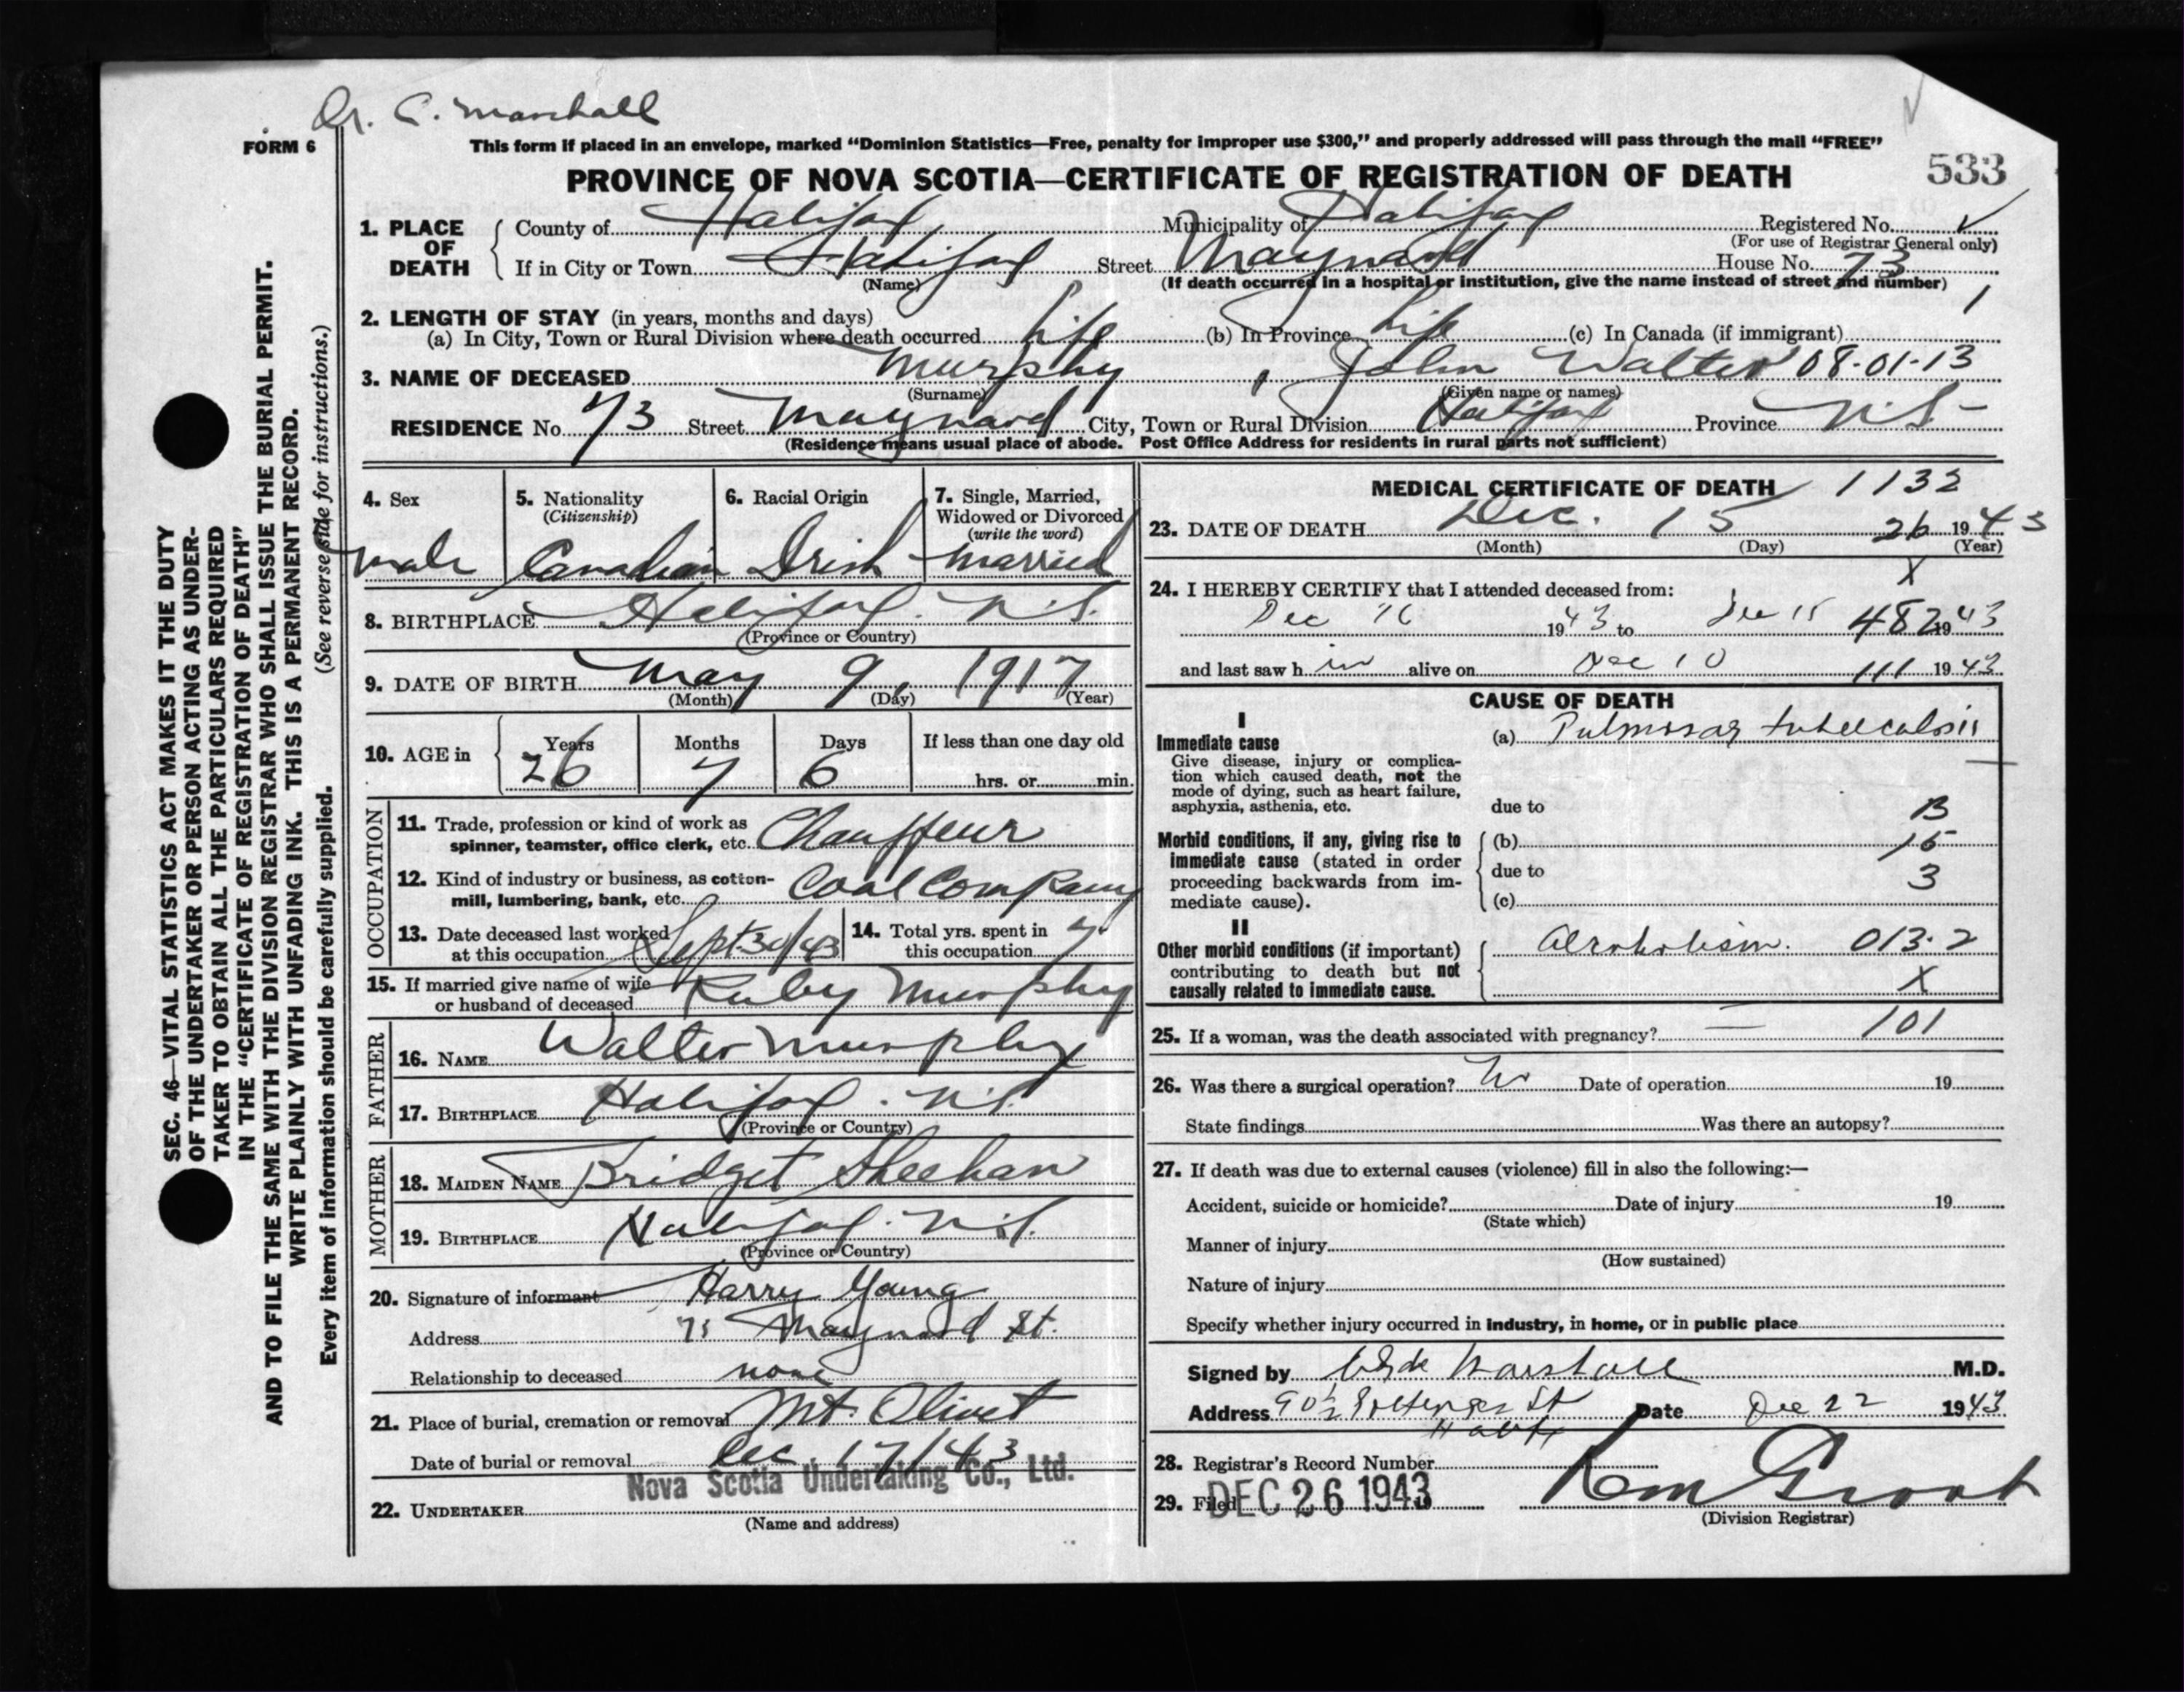 Dr. C. Marshall
FORM 6
This form if placed in an envelope, marked “Dominion Statistics—Free, penalty for improper use $300,” and properly addressed will pass through the mail “FREE”
PROVINCE OF NOVA SCOTIA—CERTIFICATE OF REGISTRATION OF DEATH
533
1. PLACE OF DEATH
County of Halifax Municipality of Halifax Registered No.
(For use of Registrar General only)
If in City or Town Halifax Street Maynard House No. 73
(Name) (If death occurred in a hospital or institution, give the name instead of street and number)
1
2. LENGTH OF STAY (in years, months and days)
(a) In City, Town or Rural Division where death occurred life (b) In Province life (c) In Canada (if immigrant)
3. NAME OF DECEASED Murphy, John Walter 08-01-13
(Surname) (Given name or names)
RESIDENCE No. 73 Street Maynard City, Town or Rural Division Halifax Province N.S-
(Residence means usual place of abode. Post Office Address for residents in rural parts not sufficient)
4. Sex
male
5. Nationality
(Citizenship)
Canadian
6. Racial Origin
Irish
7. Single, Married,
Widowed or Divorced
(write the word)
married
8. BIRTHPLACE Halifax. N.S.
(Province or Country)
9. DATE OF BIRTH May 9, 1917
(Month) (Day) (Year)
10. AGE in
Years Months Days If less than one day old
26 7 6 hrs. or min.
OCCUPATION
11. Trade, profession or kind of work as
spinner, teamster, office clerk, etc. Chauffeur
12. Kind of industry or business, as cotton-
mill, lumbering, bank, etc. Coal Company
13. Date deceased last worked
at this occupation Sept 30/43
14. Total yrs. spent in
this occupation 7
15. If married give name of wife
or husband of deceased Ruby Murphy
FATHER
16. NAME Walter Murphy
17. BIRTHPLACE Halifax. N.S.
(Province or Country)
MOTHER
18. MAIDEN NAME Bridget Sheehan
19. BIRTHPLACE Halifax. N.S.
(Province or Country)
20. Signature of informant Harry Young
Address Maynard St.
Relationship to deceased none
21. Place of burial, cremation or removal Mt. Olivet
Date of burial or removal Dec 17/43
Nova Scotia Undertaking Co., Ltd.
22. UNDERTAKER
(Name and address)
MEDICAL CERTIFICATE OF DEATH 1132
23. DATE OF DEATH Dec. 15 26 1943
(Month) (Day) (Year)
X
24. I HEREBY CERTIFY that I attended deceased from:
Dec 1943 to Dec 15 482 1943
and last saw h im alive on Dec 10 111 1943
CAUSE OF DEATH
I
Immediate cause
Give disease, injury or complica-
tion which caused death, not the
mode of dying, such as heart failure,
asphyxia, asthenia, etc.
(a) Pulmonary tuberculosis
due to
B
Morbid conditions, if any, giving rise to
immediate cause (stated in order
proceeding backwards from im-
mediate cause).
(b) 15
due to 3
(c)
II
Other morbid conditions (if important)
contributing to death but not
causally related to immediate cause.
Alcoholism. 013.2
X
25. If a woman, was the death associated with pregnancy? — 101
26. Was there a surgical operation? No Date of operation 19
State findings Was there an autopsy?
27. If death was due to external causes (violence) fill in also the following:—
Accident, suicide or homicide? Date of injury 19
(State which)
Manner of injury
(How sustained)
Nature of injury
Specify whether injury occurred in industry, in home, or in public place
Signed by Clyde Marshall M.D.
Address 90½ St Date Dec 22 1943
28. Registrar's Record Number
29. Filed DEC 26 1943
(Division Registrar)
SEC. 46—VITAL STATISTICS ACT MAKES IT THE DUTY
OF THE UNDERTAKER OR PERSON ACTING AS UNDER-
TAKER TO OBTAIN ALL THE PARTICULARS REQUIRED
IN THE “CERTIFICATE OF REGISTRATION OF DEATH”
AND TO FILE THE SAME WITH THE DIVISION REGISTRAR WHO SHALL ISSUE THE BURIAL PERMIT.
WRITE PLAINLY WITH UNFADING INK. THIS IS A PERMANENT RECORD.
Every item of information should be carefully supplied. (See reverse side for instructions.)